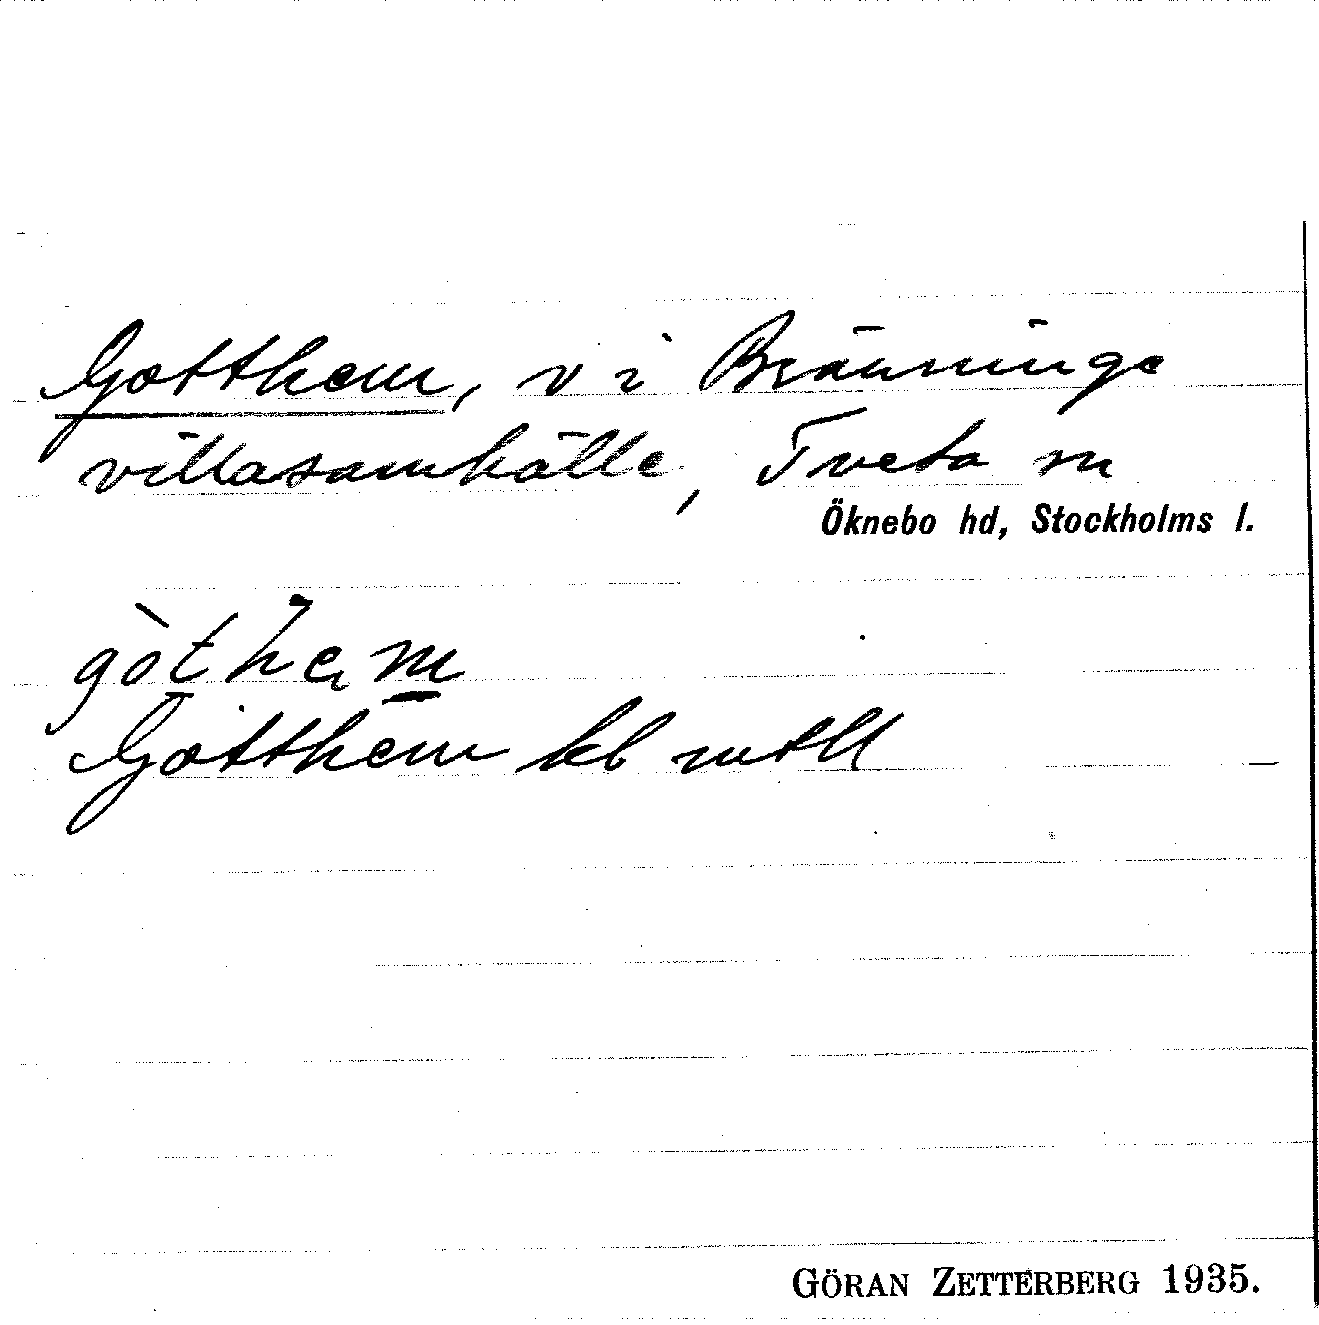 Gotthem, v i Bränninge
villasamhälle, Tveta sn
Öknebo hd, Stockholms l.
gòthem
Gotthem kl
GÖRAN ZETTERBERG 1935.